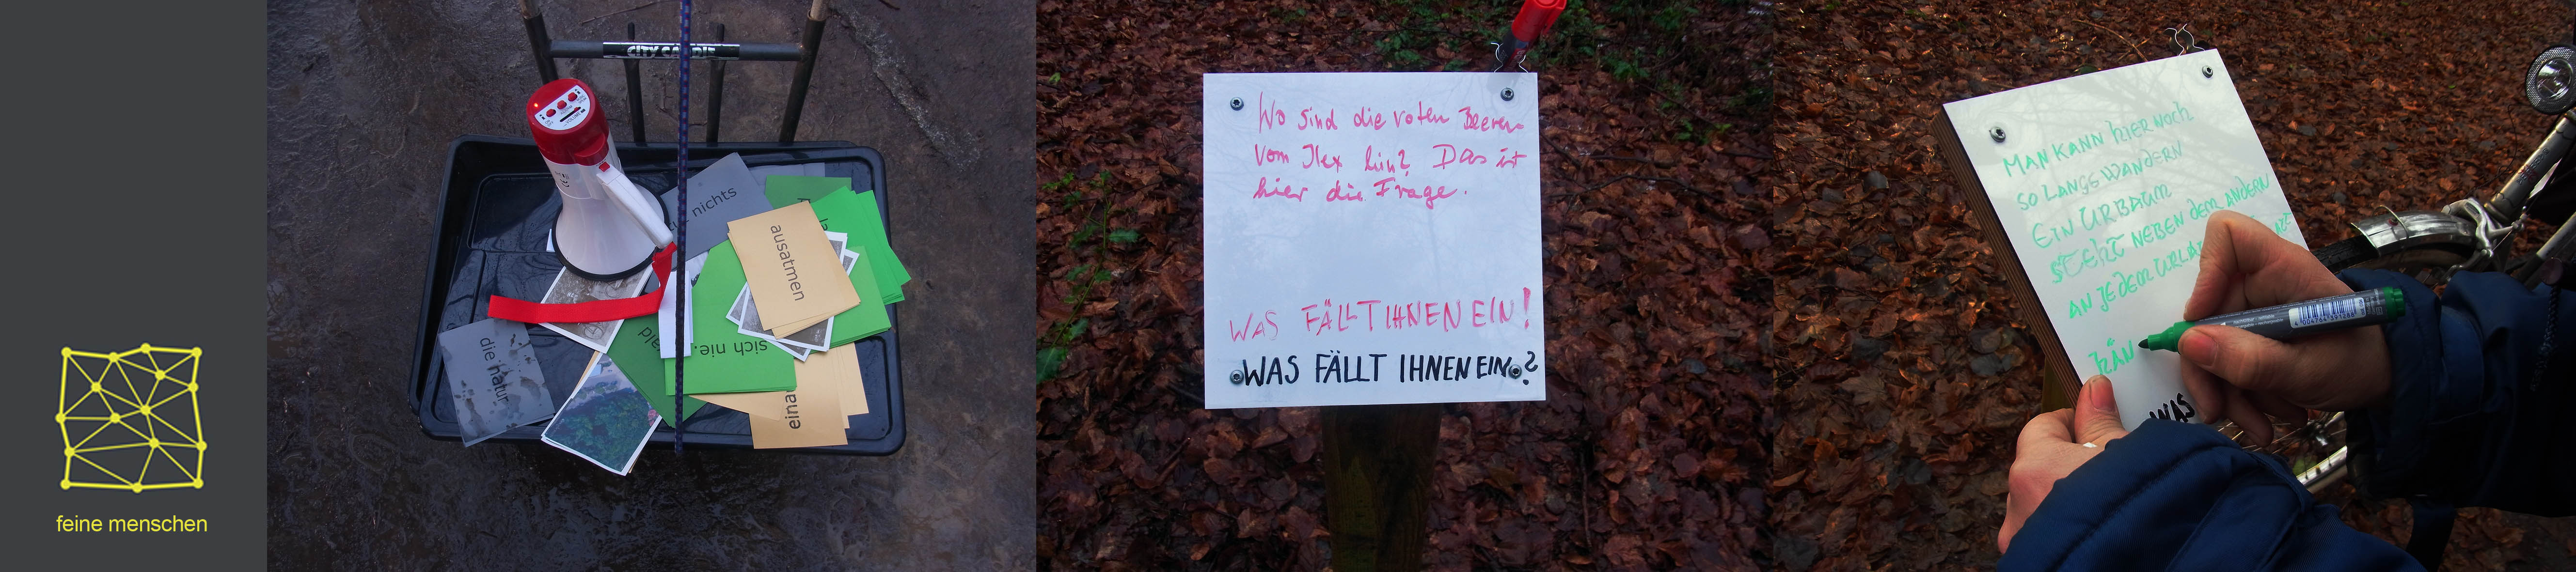 feine menschen
CITY CADDIE
nichts
ausatmen
sich nie.
ald
die natur
eina
Wo sind die roten Beeren
vom Ilex hin? Das ist
hier die Frage.
WAS FÄLLT IHNEN EIN!
WAS FÄLLT IHNEN EIN?
MAN KANN HIER NOCH
SO LANGE WANDERN
EIN URBAUM
STEHT NEBEN DEM ANDERN
AN JEDEM
HÄN
WAS